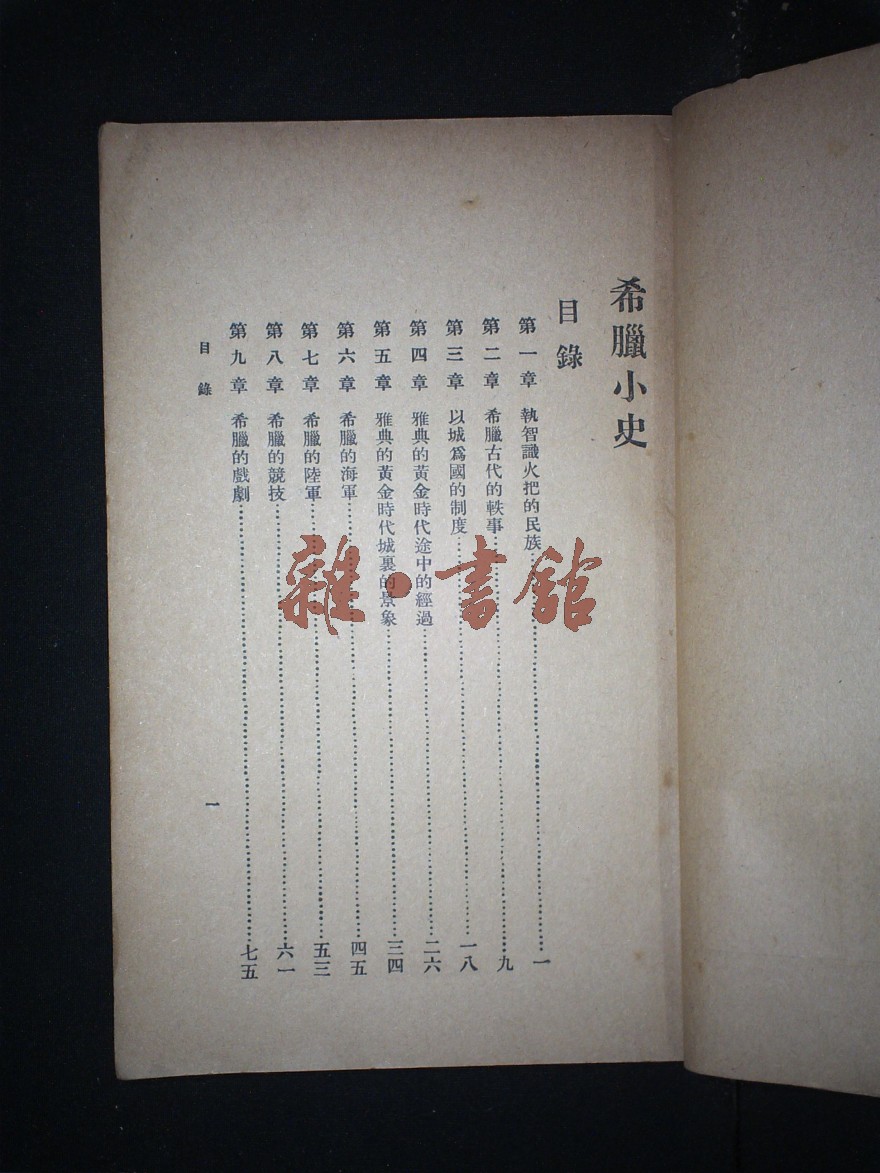 希臘小史
目錄
第一章 執智識火把的民族……一
第二章 希臘古代的軼事……九
第三章 以城爲國的制度……一八
第四章 雅典的黃金時代途中的經過……二六
第五章 雅典的黃金時代城裏的景象……三四
第六章 希臘的海軍……四五
第七章 希臘的陸軍……五三
第八章 希臘的競技……六一
第九章 希臘的戲劇……七五
目錄 一
雜·書館